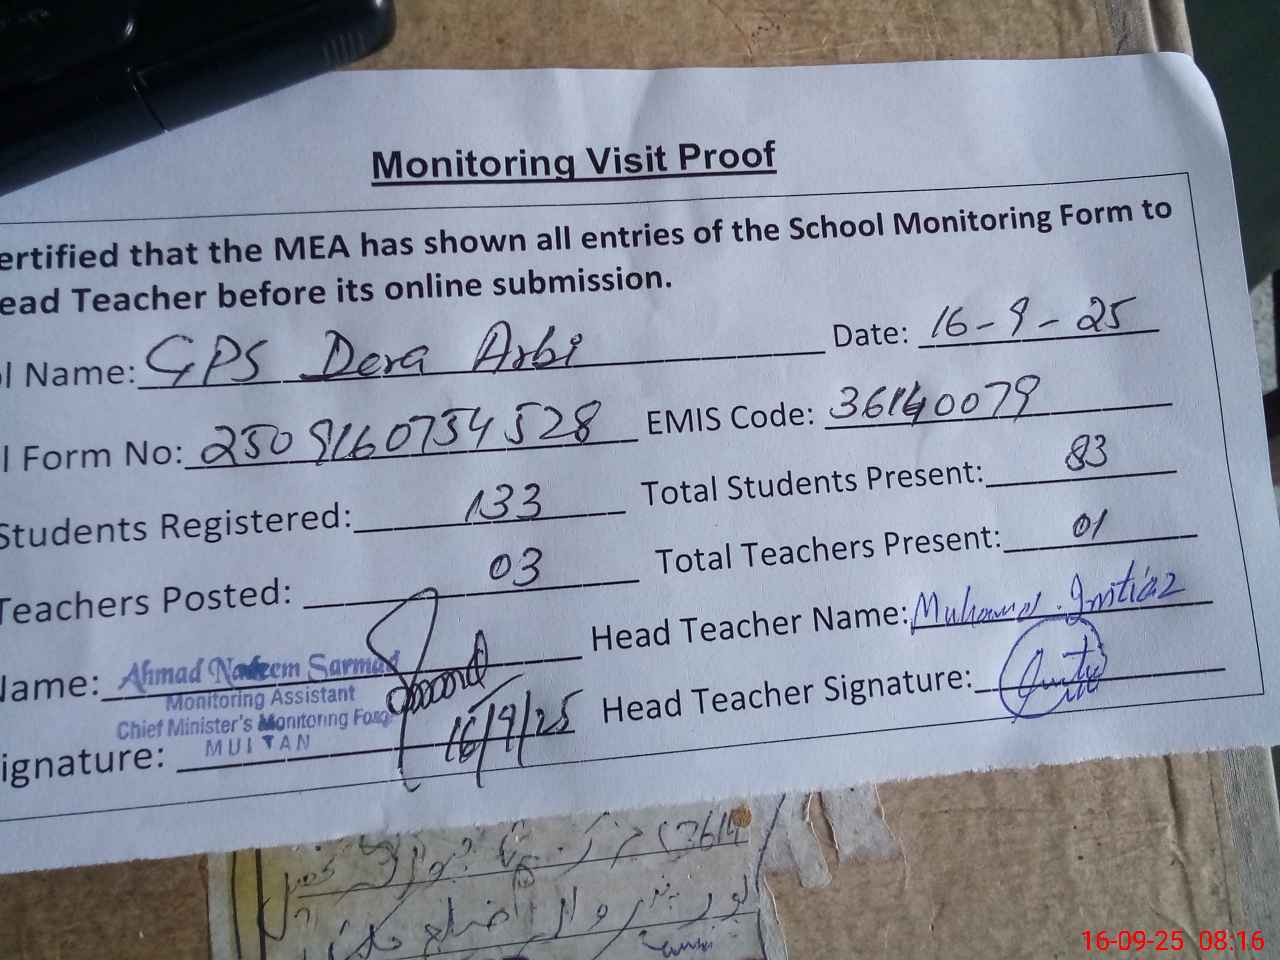 Monitoring Visit Proof
ertified that the MEA has shown all entries of the School Monitoring Form to
ead Teacher before its online submission.
l Name: GPS Dera Arbi Date: 16-9-25
l Form No: 2509160754528 EMIS Code: 36140079
Students Registered: 133 Total Students Present: 83
Teachers Posted: 03 Total Teachers Present: 01
Name: Ahmad Nadeem Sarmad Head Teacher Name: Muhammad Imtiaz
Monitoring Assistant
Chief Minister's Monitoring Force
MULTAN
ignature: 16/9/25 Head Teacher Signature:
ضلع
16-09-25 08:16